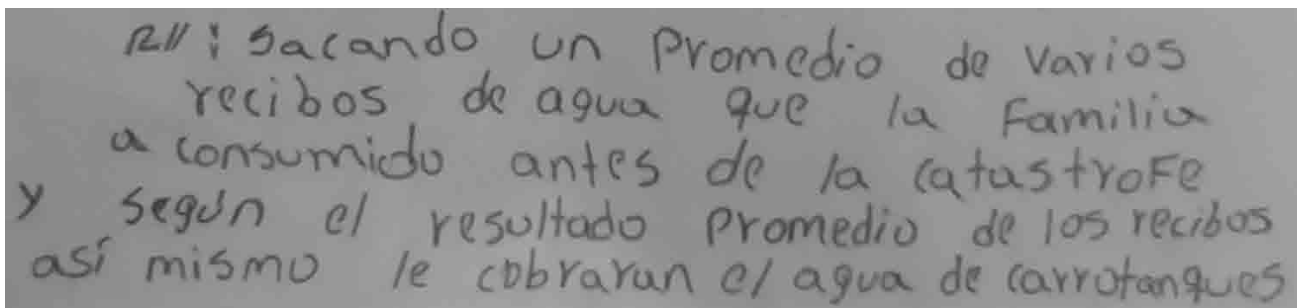 R//: Sacando un Promedio de varios
recibos de agua que la Familia
a consumido antes de la catastroFe
y según el resultado Promedio de los recibos
así mismo le cobraran el agua de carrotanques